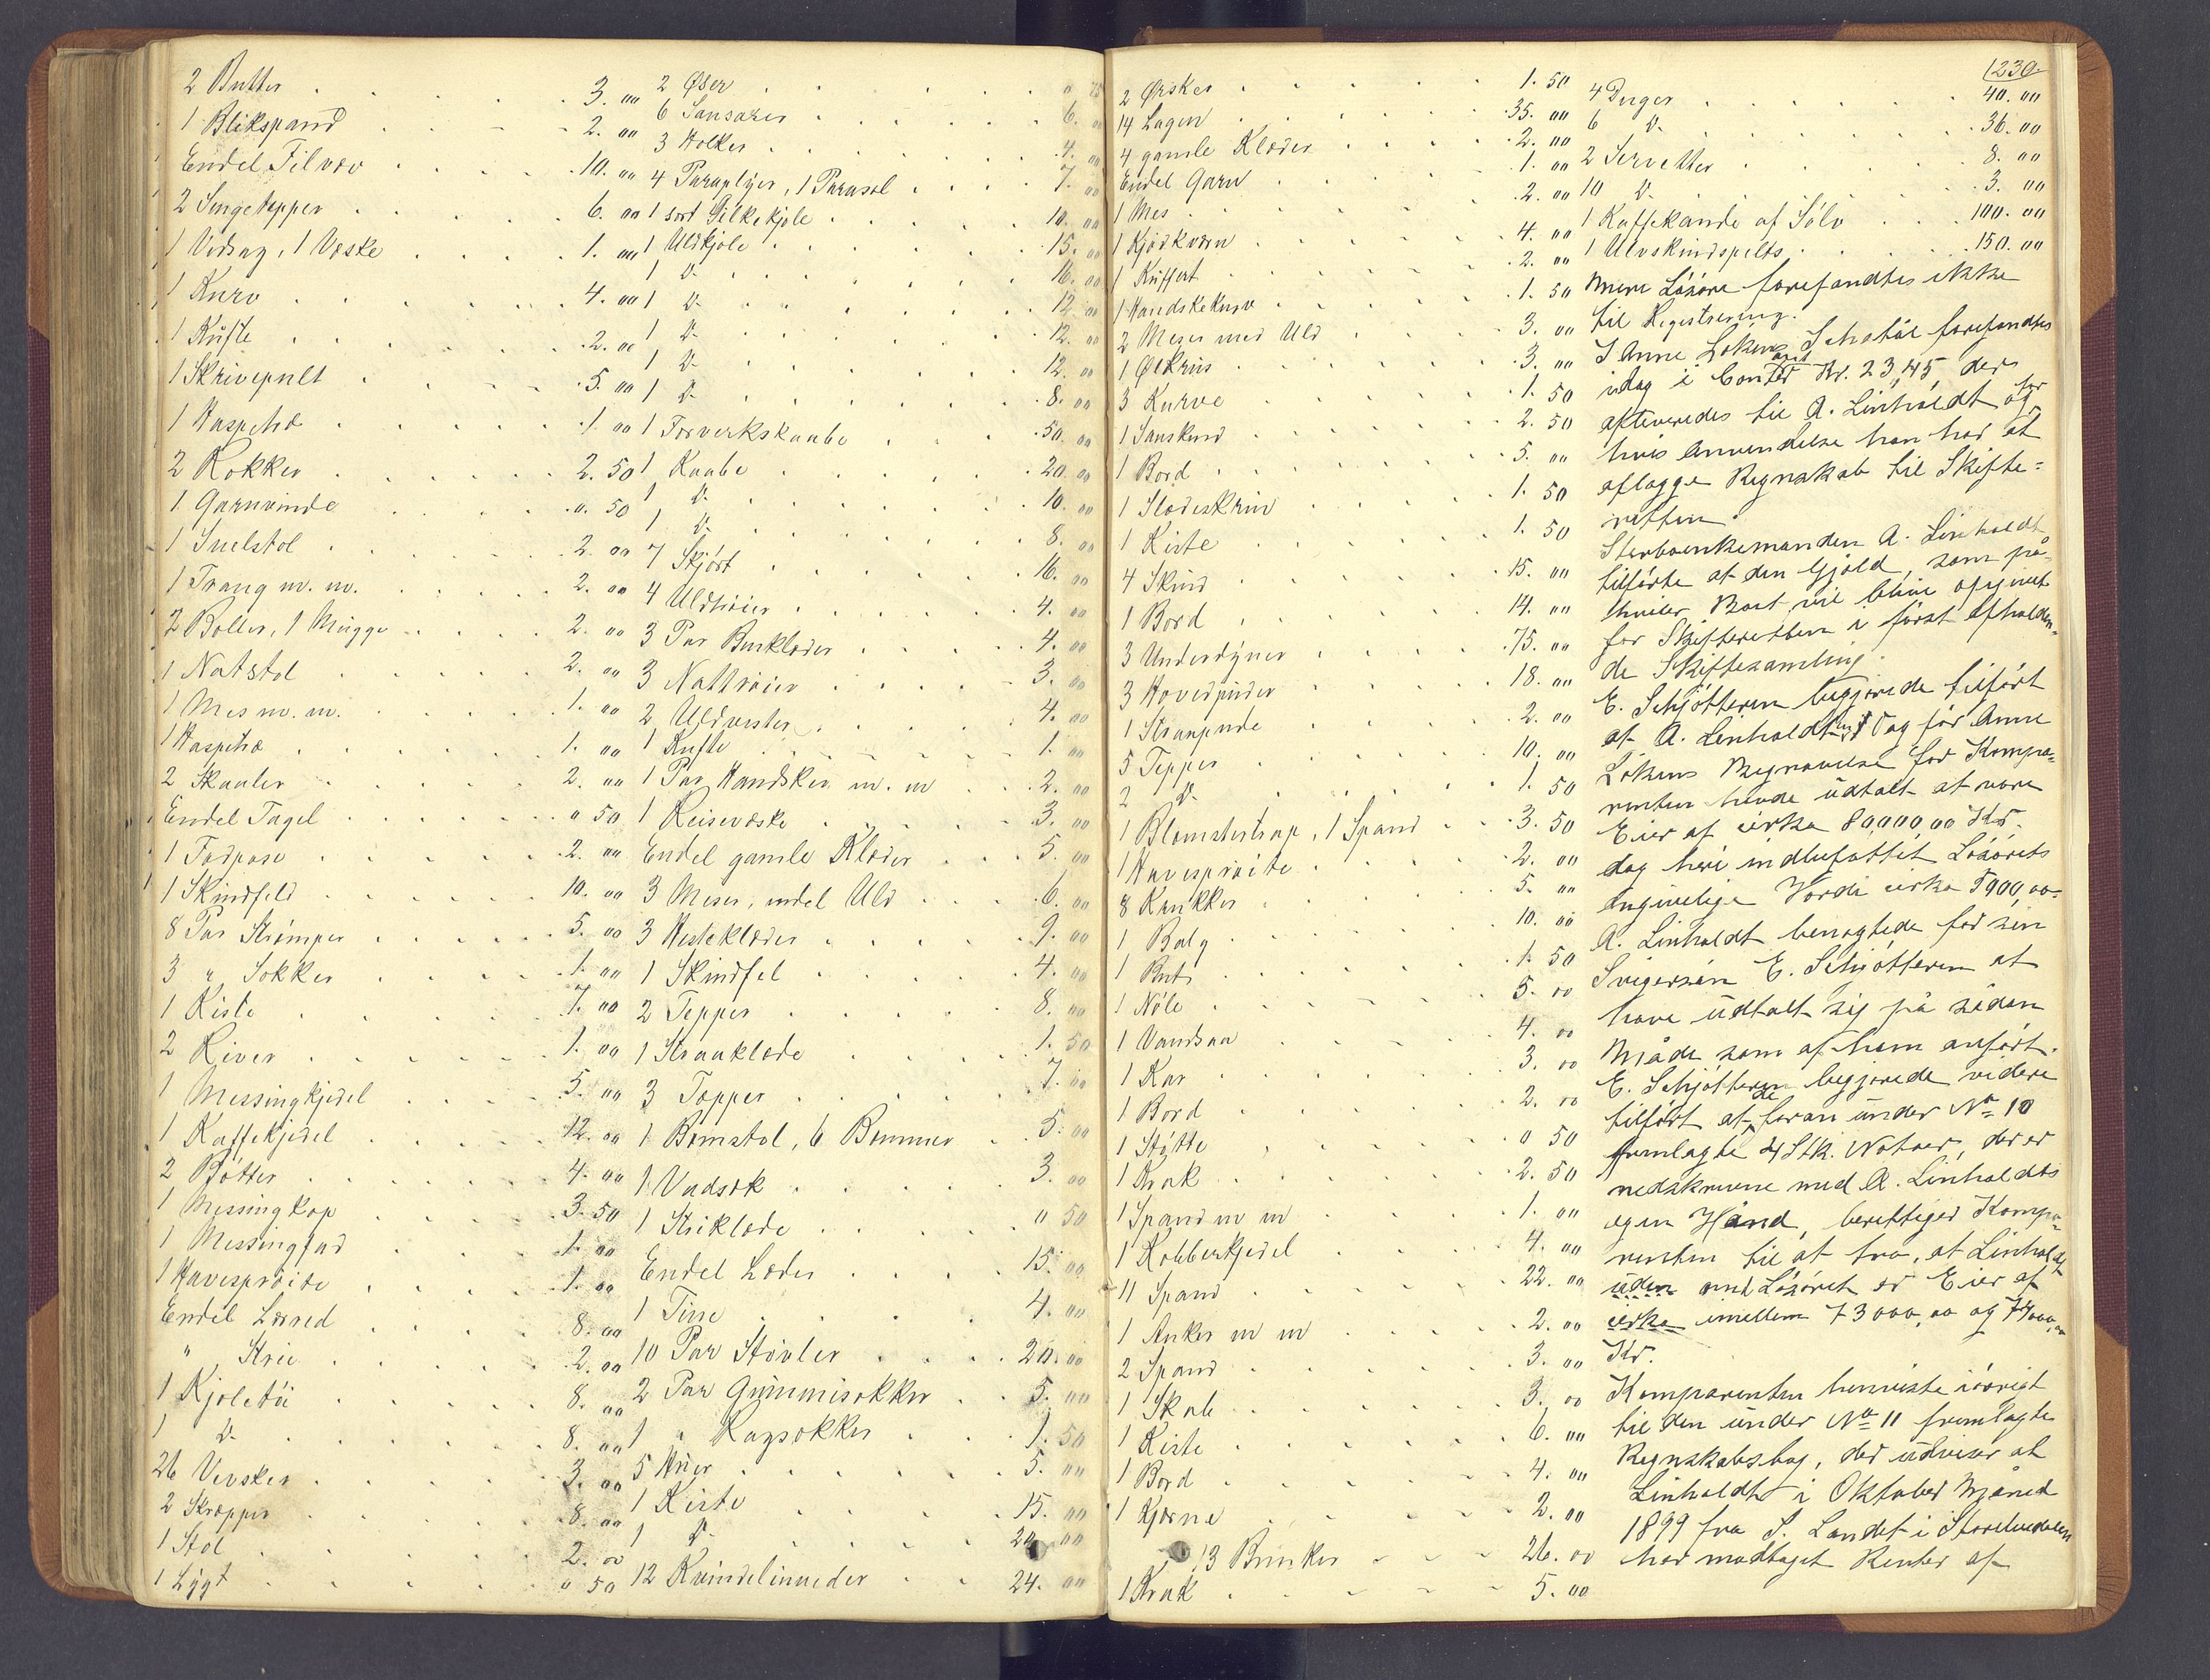 2 Butter . . . . 3. 00
1 Blikspand . . . . 2. 00
Endel Filvæv . . . . 10. 00
2 Sengetepper . . . . 6. 00
1 Vedsag, 1 Væske . . . . 1. 00
1 Kurv . . . . 4. 00
1 Kufte . . . . 2. 00
1 Skrivepult . . . . 5. 00
1 Haspetræ . . . . 1. 00
2 Rokker . . . . 2. 50
1 Garnvinde . . . . 0. 50
1 Snelstol . . . . 2. 00
1 Traug m. m. . . . . 2. 00
2 Boller, 1 Mugge . . . . 2. 00
1 Natstol . . . . 2. 00
1 Mes m. m. . . . . 1. 00
1 Haspetræ . . . . 1. 00
2 Skauler . . . . 2. 00
Endel Tagel . . . . " 50
1 Fodpose . . . . 2. 00
1 Skindfeld . . . . 10. 00
8 Par Strømper . . . . 5. 00
3 " Sokker . . . . 1. 00
1 Kiste . . . . 7. 00
2 River . . . . 1. 00
1 Messingkjedel . . . . 5. 00
1 Kaffekjedel . . . . 12. 00
2 Bøtter . . . . 4. 00
1 Messingkop . . . . 3. 50
1 Messingfad . . . . 1. 00
1 Havesprøite . . . . 1. 00
Endel Lærred . . . . 8. 00
" Strie . . . . 2. 00
1 Kjoletøi . . . . 8. 00
1 D. . . . . 8. 00
26 Versker . . . . 3. 00
2 Skræpper . . . . 8. 00
1 Stol . . . . 2. 00
1 Lygt . . . . " 50
2 Øser . . . . " 75
6 Sansarer . . . . 6. 00
3 Holker . . . . 4. 00
4 Paraplyer, 1 Parasol . . . . 7. 00
1 sort Silkekjole . . . . 10. 00
1 Uldkjole . . . . 15. 00
1 D. . . . . 16. 00
1 D. . . . . 12. 00
1 D. . . . . 12. 00
1 D. . . . . 12. 00
1 D. . . . . 8. 00
1 Forverkskaabe . . . . 50. 00
1 Kaabe . . . . 20. 00
1 D. . . . . 10. 00
1 D. . . . . 8. 00
7 Skjørt . . . . 16. 00
4 Uldtrøier . . . . 4. 00
3 Par Benklæder . . . . 4. 00
3 Nattrøier . . . . 3. 00
2 Uldvester . . . . 4. 00
1 Kufte . . . . 1. 00
1 Par Handsker m. m . . 2. 00
1 Reisevæske . . . . 3. 00
Endel gamle Klæder . . . 5. 00
3 Meser, endel Uld . . . 6. 00
3 Hesteklæder . . . . 9. 00
1 Skindfel . . . . 4. 00
2 Tepper . . . . 8. 00
1 Straaklæde . . . . 1. 50
3 Tepper . . . . 7. 00
1 Bomstol, 6 Bommer . . 5. 00
1 Vadsæk . . . . 3. 00
1 Striklæde . . . . " 50
Endel Læder . . . . 15. 00
1 Tine . . . . 4. 00
10 Par Støvler . . . . 20. 00
2 Par Gummisokker . . 5. 00
1 " Ragsokker . . 1. 50
5 Huer . . . . 5. 00
1 Kiste . . . . 15. 00
1 D. . . . . 20. 00
12 Kvindelinneder . . 24. 00
2 Øsker . . . . 1. 50
14 Lagen . . . . 35. 00
4 gamle Klæder . . . . 2. 00
Endel Garn . . . . 1. 00
1 Mes . . . . 2. 00
1 Kjødkværn . . . . 4. 00
1 Kuffert . . . . 2. 00
1 Handskekurv . . . . 1. 50
2 Meser med Uld . . . . 3. 00
1 Ølkrus . . . . 3. 00
3 Kurve . . . . 1. 50
1 Sauskind . . . . 2. 50
1 Bord . . . . 5. 00
1 Slædeskrin . . . . 1. 50
1 Kiste . . . . 1. 50
4 Skind . . . . 15. 00
1 Bord . . . . 14. 00
3 Underdyner . . . . 75. 00
3 Hovedpuder . . . . 18. 00
1 Straapude . . . . 2. 00
5 Tepper . . . . 10. 00
2 D. . . . . 1. 50
1 Blomstertrap, 1 Spand . . 3. 50
1 Havesprøite . . . . 2. 00
8 Krukker . . . . 5. 00
1 Balg . . . . 10. 00
1 But . . . . 1. 50
1 Nøle . . . . 5. 00
1 Vandsaa . . . . 4. 00
1 Kar . . . . 3. 00
1 Bord . . . . 2. 00
1 Støtte . . . . 0 50
1 Krak . . . . 2. 50
1 Spand m m . . . . 1. 00
1 Kobberkjedel . . . . 4. 00
11 Spand . . . . 22. 00
1 Anker m m . . . . 2. 00
2 Spand . . . . 3. 00
1 Skab . . . . 3. 00
1 Kiste . . . . 6. 00
1 Bord . . . . 4. 00
1 Kjærne . . . . 2. 00
13 Brunker . . . 26. 00
1 Krak . . . . 5. 00
1230.
4 Duger . . . . 40. 00
6 D. . . . . 36. 00
2 Servetter . . . . 8. 00
10 D. . . . . 3. 00
1 Kaffekande af Sølv . . . 100. 00
1 Ulvskindspelts . . . . 150. 00
Mere Løsøre forefandtes ikke
til Registrering.
I Anne Løkens Schatol forefandtes
idag i Contant Kr. 23,45, der
afleveredes til A. Linholdt og for
hvis Anvendelse han har at
aflægge Regnskab til Skifte-
retten.
Sterboenkemanden A. Linholdt
tilførte at den Gjæld, som på-
hviler Boet vil blive opgivet
for Skifteretten i først afholden-
de Skiftesamling.
E. Schjøtteren begjærede tilført
at A. Linholdt en Dag før Anne
Løkens Begravelse for Kompa-
renten havde udtalt at være
Eier af cirka 80,000,00 Kr.
dog heri indbefattet Løsørets
angivelige Værdi cirka 5000,00.
A. Linholdt benegtede for sin
Svigersøn E. Schjøtteren at
have udtalt sig på sådan
Måde som af ham anført.
E. Schjøtteren begjærede videre
tilført at de foran under No 10
fremlagte 4 Stk. Notaer, der er
nedskrevne med A. Linholdts
egen Hånd, berettiger Kompa-
renten til at tro, at Linholdt
uden med Løsøret er Eier af
cirka imellem 73000,00 og 74000,00
Kr.
Komparenten henviste iøvrigt
til den under No 11 fremlagte
Regnskabsbog, der udviser at
Linholdt i Oktober Måned
1899 fra S. Landet i Storelvedalen
har modtaget Renter af